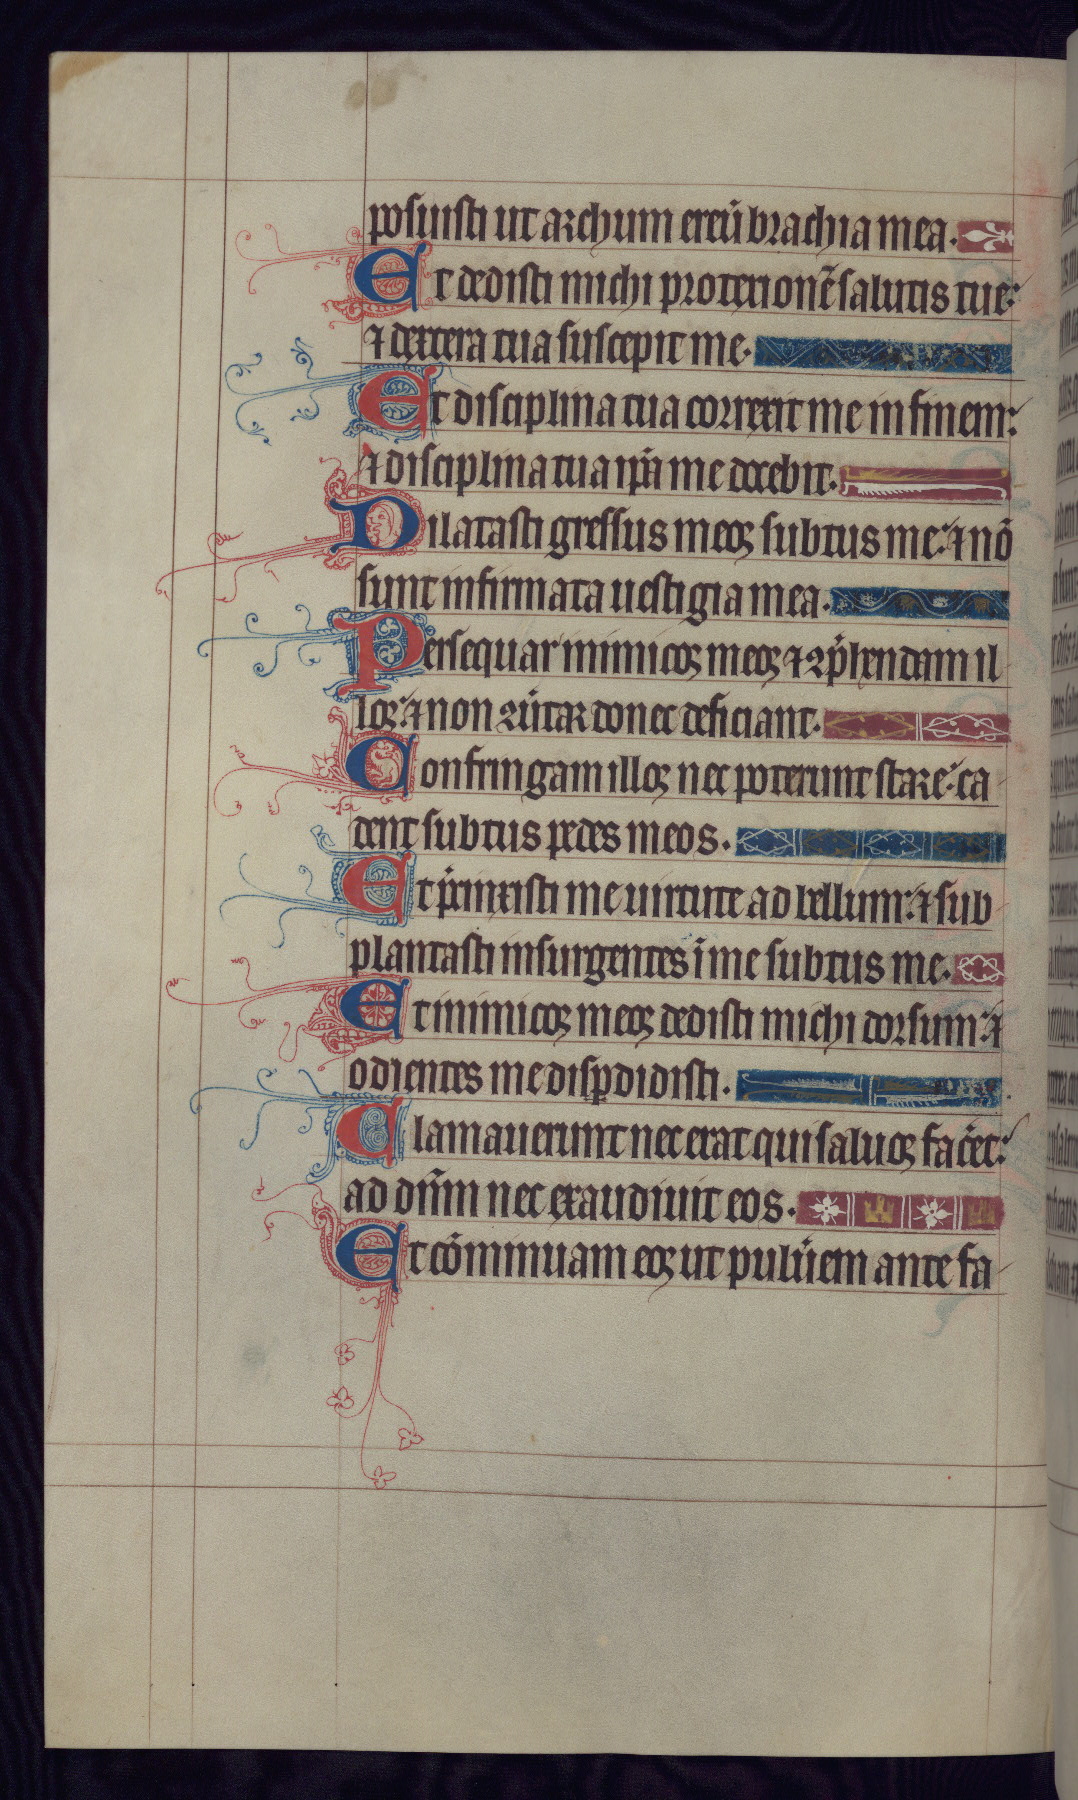 posuisti ut archum ereū brachia mea.
Et dedisti michi protectionē salutis tue:
⁊ dextera tua suscepit me.
Et disciplina tua correxit me in finem:
⁊ disciplina tua ip̄a me docebit.
Dilatasti gressus meoꝝ subtus me: ⁊ nō
sunt infirmata uestigia mea.
Persequar inimicoꝝ meoꝝ ⁊ ꝯp̄hendam il
loꝝ: ⁊ non ꝯūtar donec deficiant.
Confringam illoꝝ nec poterunt stare: ca
dent subtus pedes meos.
Et p̄cinxisti me uirtute ad bellum: ⁊ sub
plantasti insurgentes ī me subtus me.
Et inimicoꝝ meoꝝ dedisti michi dorsum: ⁊
odientes me disꝑdidisti.
Clamauerunt nec erat qui saluoꝝ fac̄et:
ad dn̄m nec exaudiuit eos.
Et cōminuam eoꝝ ut puluēm ante fa